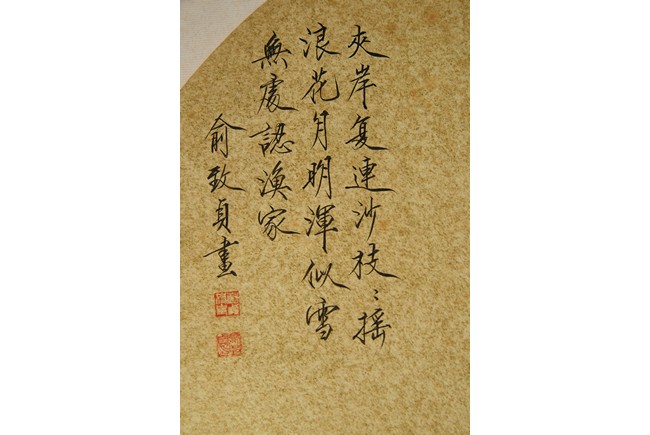 夾岸复連沙枝〻搖
浪花月明渾似雪
無處認漁家
俞致貞畫